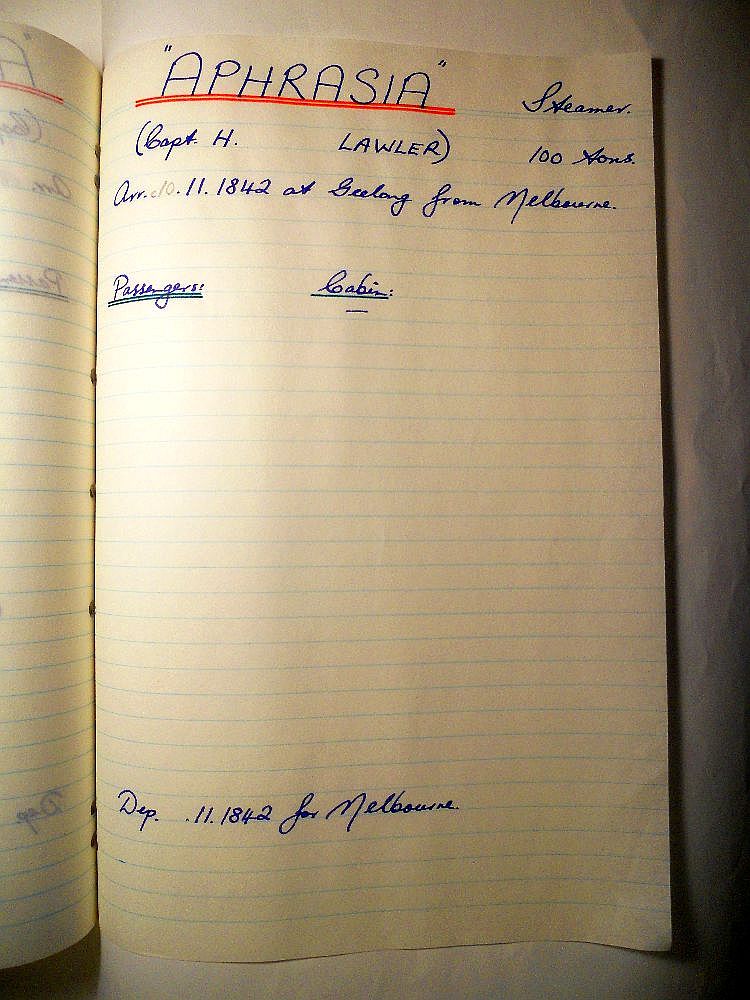 "APHRASIA" Steamer.
(Capt. H. LAWLER) 100 tons.
Arr. c10.11.1842 at Geelong from Melbourne.
Passengers: Cabin:
—
Dep. .11.1842 for Melbourne.